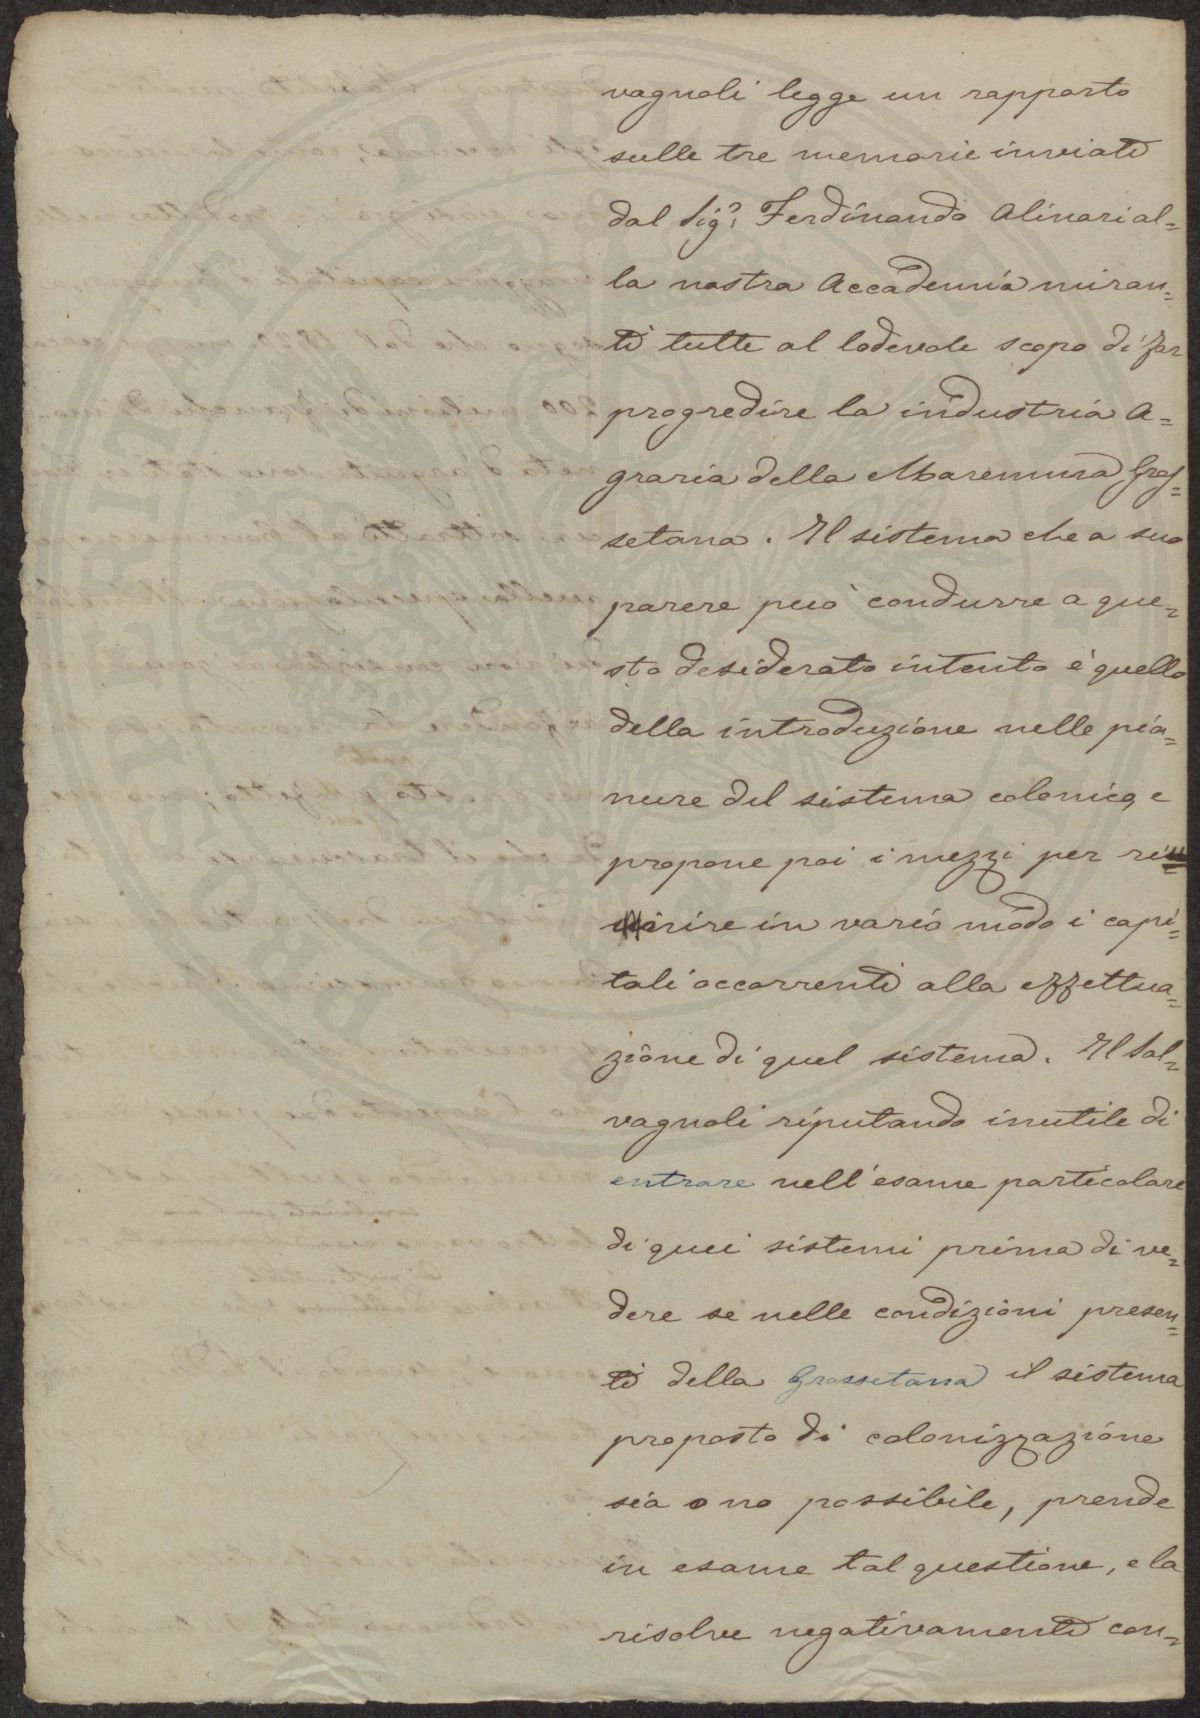 vagnoli legge un rapporto
sulle tre memorie inviate
dal Sig.r Ferdinando Alinari al=
la nostra Accademia miran=
ti tutte al lodevole scopo di far
progredire la industria a=
graria della Maremma Gros=
setana. Il sistema che a suo
parere può condurre a que=
sto desiderato intento è quello
della introduzione nelle pia=
nure del sistema colonico, e
propone poi i mezzi per ri
nire in vario modo i capi=
tali occorrenti alla effettua=
zione di quel sistema. Il Sal=
vagnoli riputando inutile di
entrare nell'esame particolare
di quei sistemi prima di ve=
dere se nelle condizioni presen=
ti della Grossetana il sistema
proposto di colonizzazione
sia o no possibile, prende
in esame tal questione, e la
risolve negativamente con=